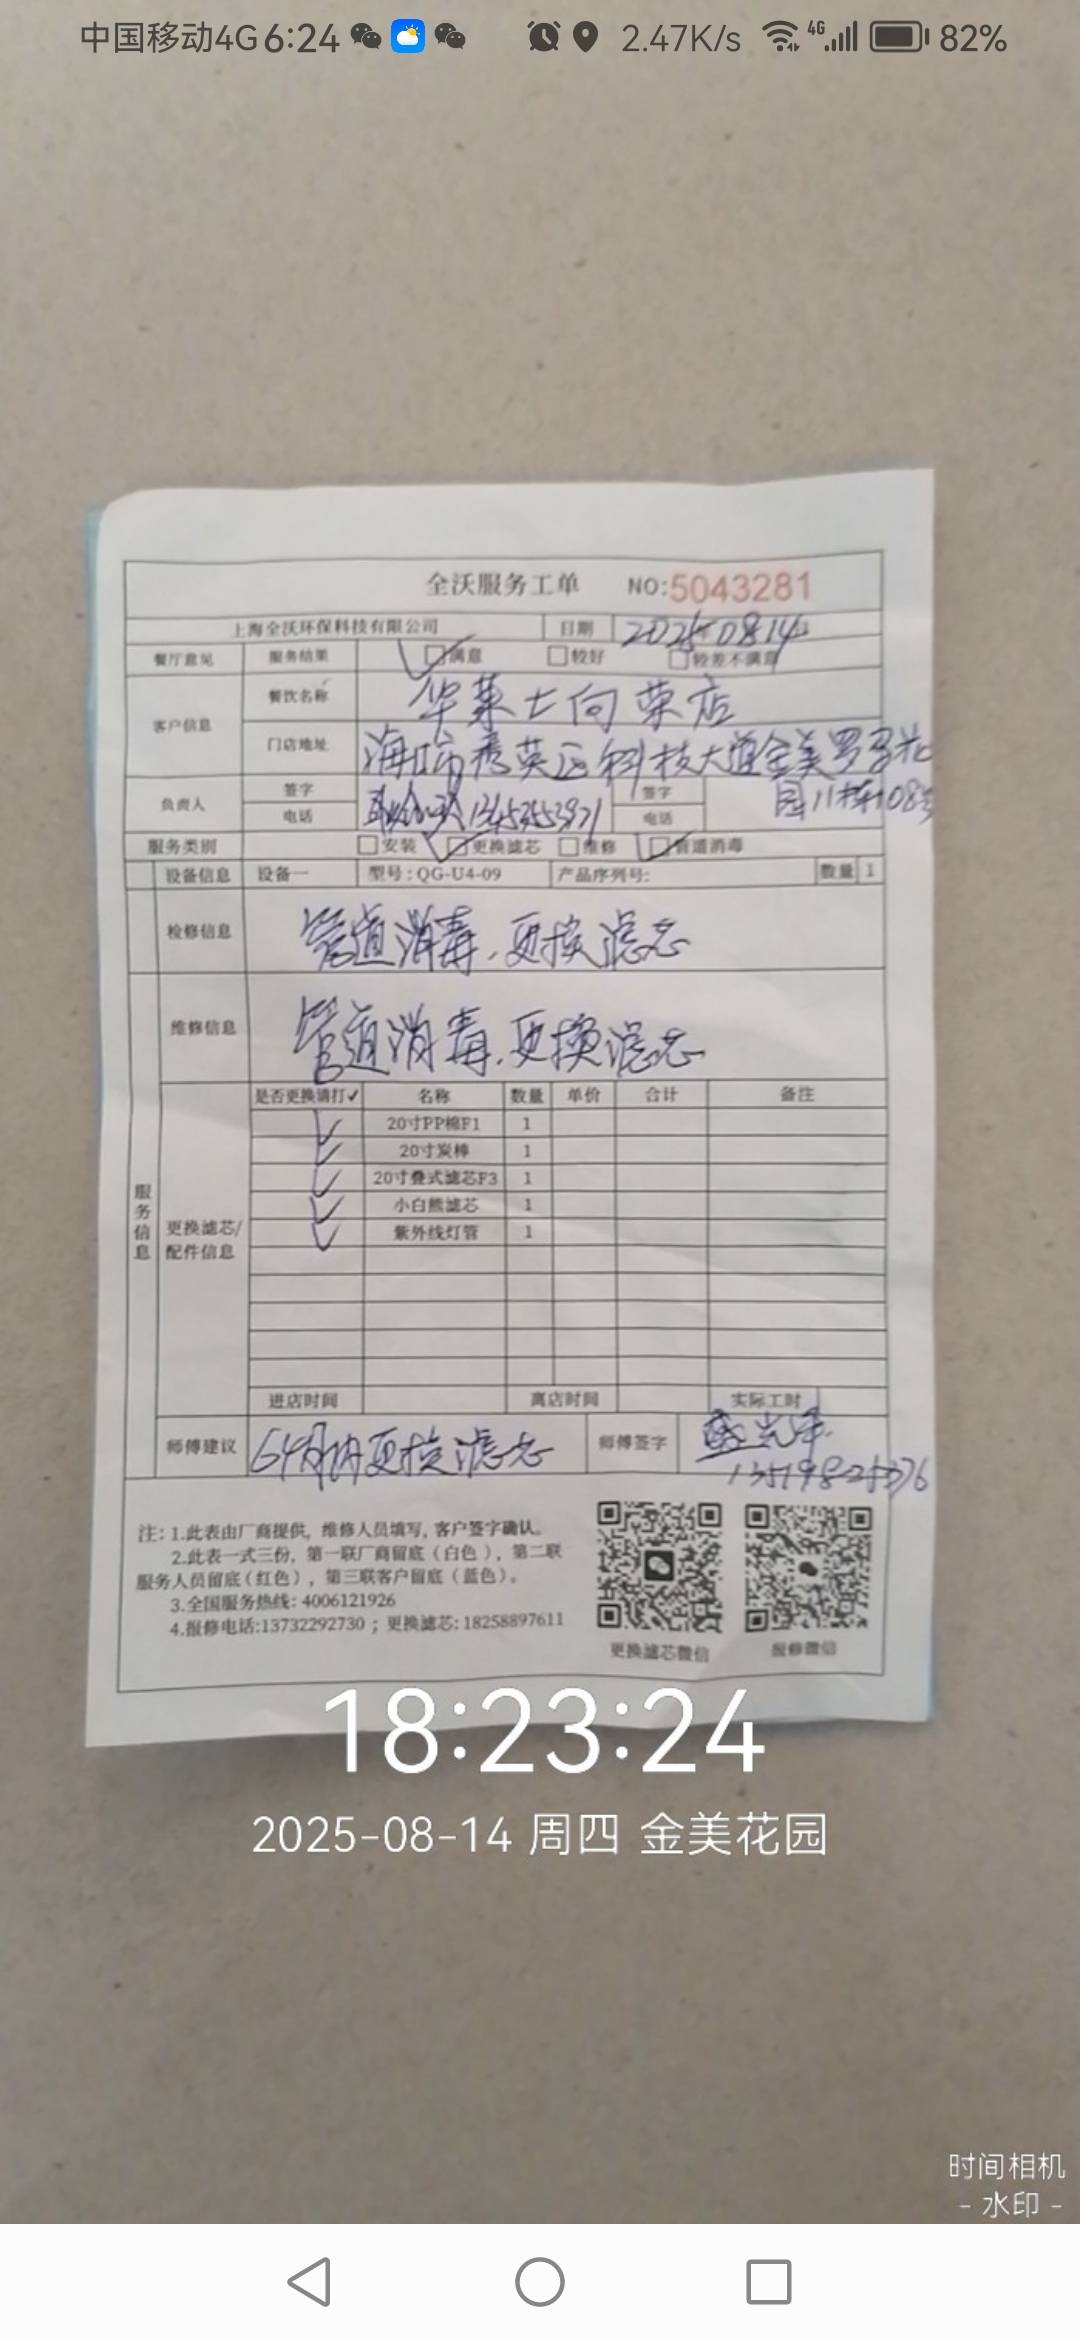 中国移动4G 6:24 2.47K/s 4G 82%
全沃服务工单 NO:5043281
上海全沃环保科技有限公司 日期 2025 0814
餐厅意见 服务结果 满意 较好 较差不满意
客户信息 餐饮名称 华莱士向荣店
门店地址 海口市秀英区科技大道金美罗马花
园11栋108号
负责人 签字 签字
电话 电话
服务类别 安装 更换滤芯 维修 管道消毒
设备信息 设备一 型号:QG-U4-09 产品序列号: 数量 1
检修信息 管道消毒.更换滤芯
维修信息 管道消毒.更换滤芯
服务信息
更换滤芯/配件信息
是否更换请打✓ 名称 数量 单价 合计 备注
✓ 20寸PP棉F1 1
✓ 20寸炭棒 1
✓ 20寸叠式滤芯F3 1
✓ 小白熊滤芯 1
✓ 紫外线灯管 1
进店时间 离店时间 实际工时
师傅建议 6个月内更换滤芯 师傅签字
注: 1.此表由厂商提供, 维修人员填写, 客户签字确认。
2.此表一式三份, 第一联厂商留底(白色), 第二联
服务人员留底(红色), 第三联客户留底(蓝色)。
3.全国服务热线: 4006121926
4.报修电话:13732292730 ; 更换滤芯: 18258897611
更换滤芯微信 报修微信
18:23:24
2025-08-14 周四 金美花园
时间相机
- 水印 -